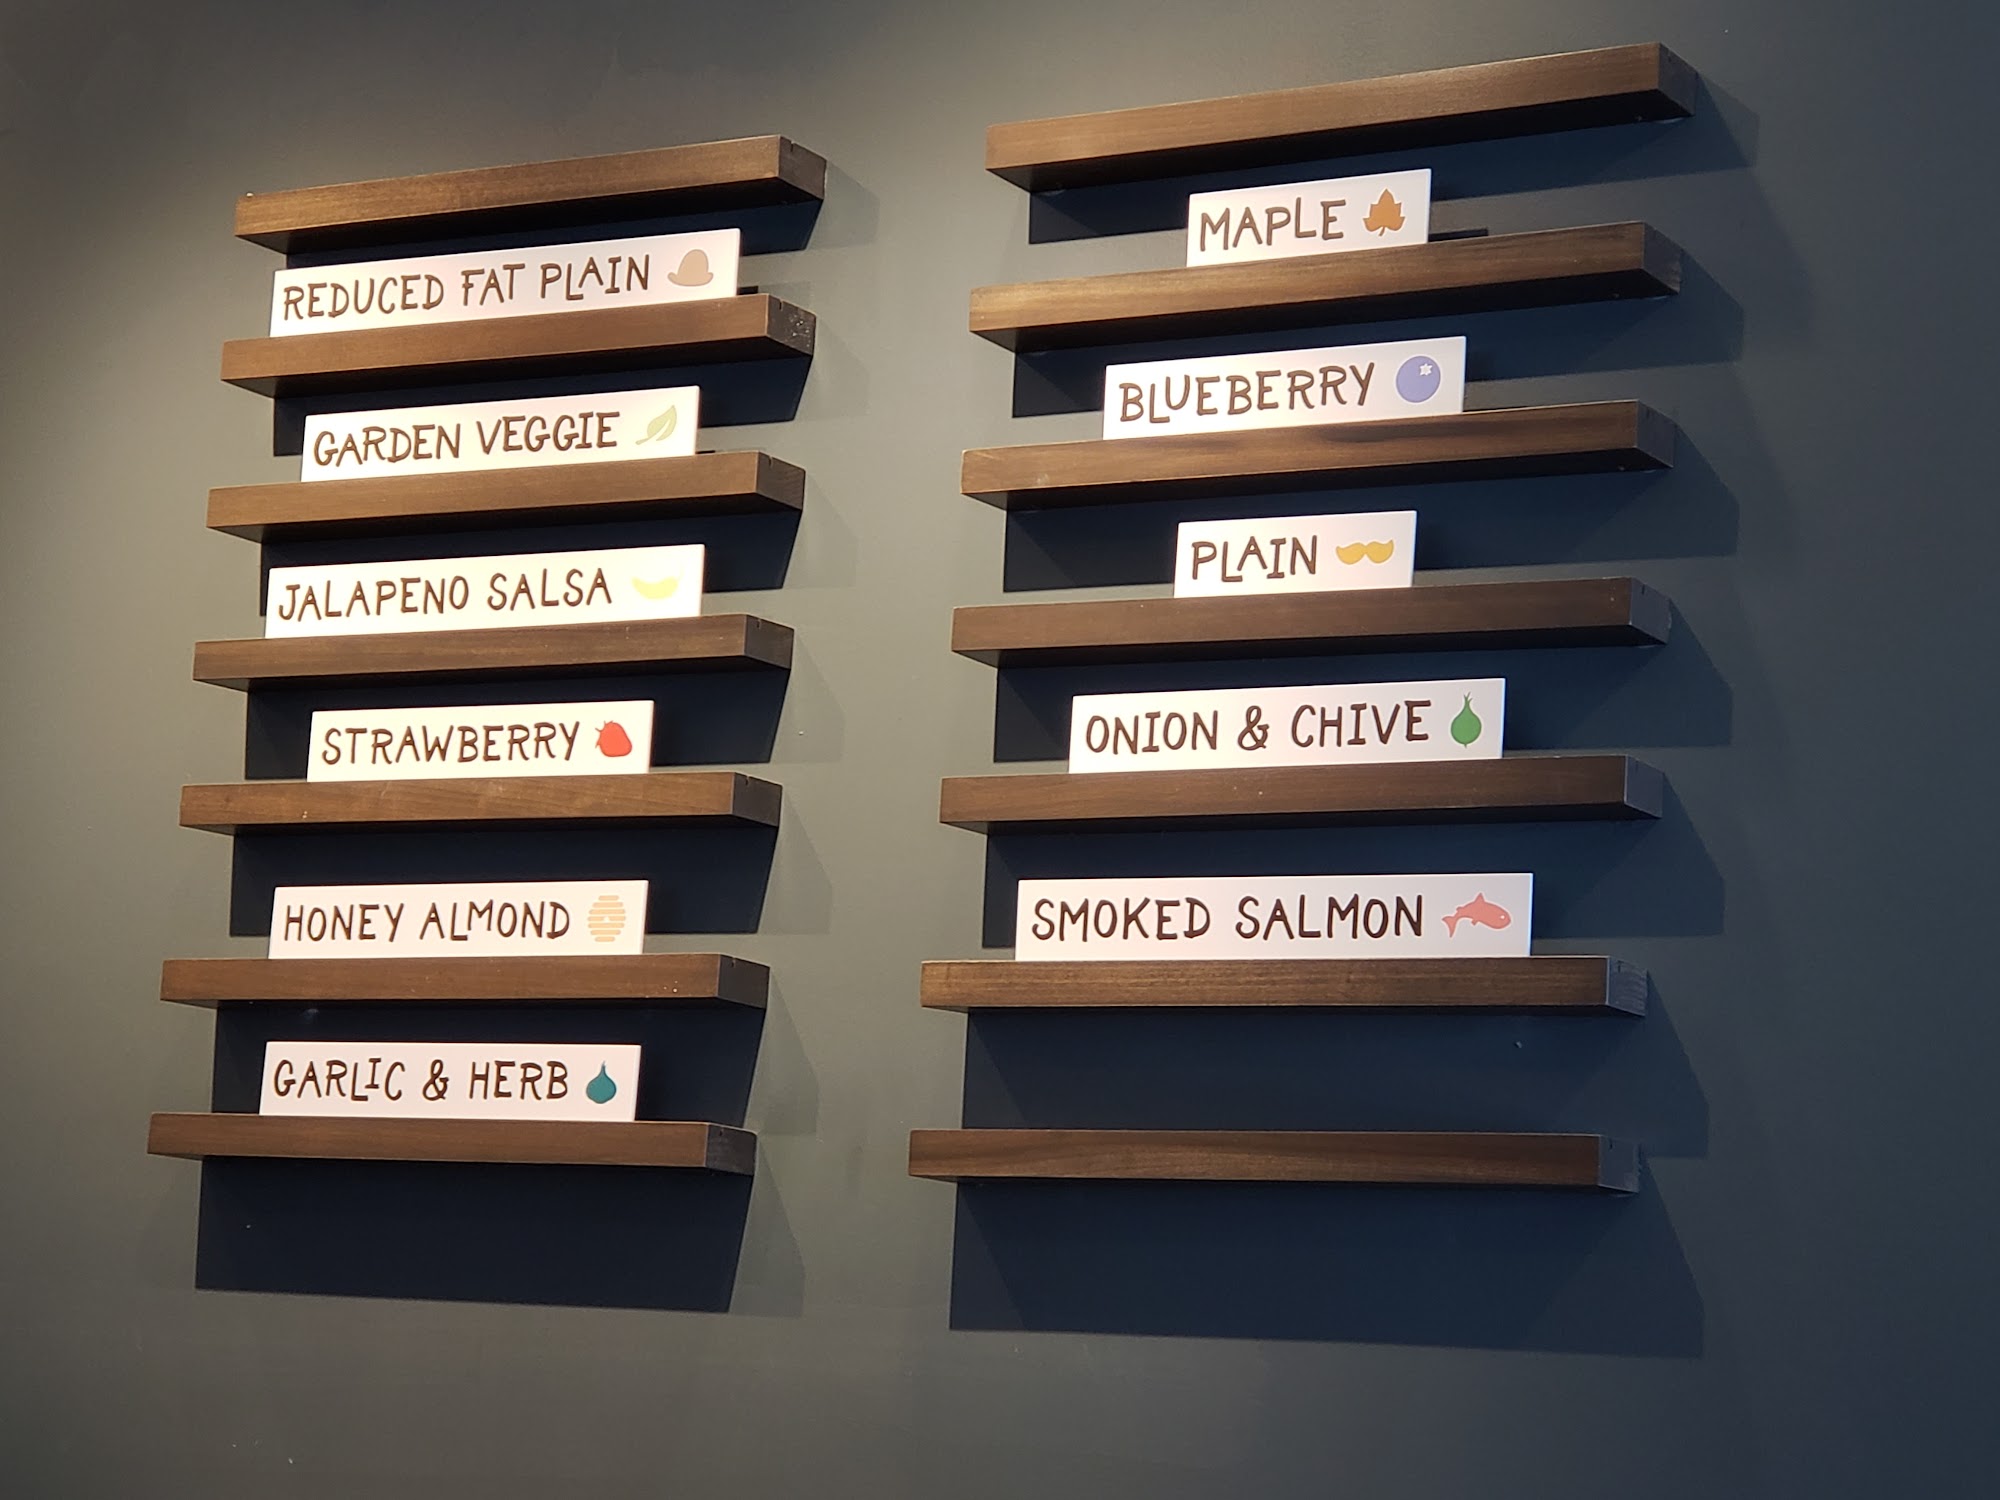 REDUCED FAT PLAIN
GARDEN VEGGIE
JALAPENO SALSA
STRAWBERRY
HONEY ALMOND
GARLIC & HERB
MAPLE
BLUEBERRY
PLAIN
ONION & CHIVE
SMOKED SALMON